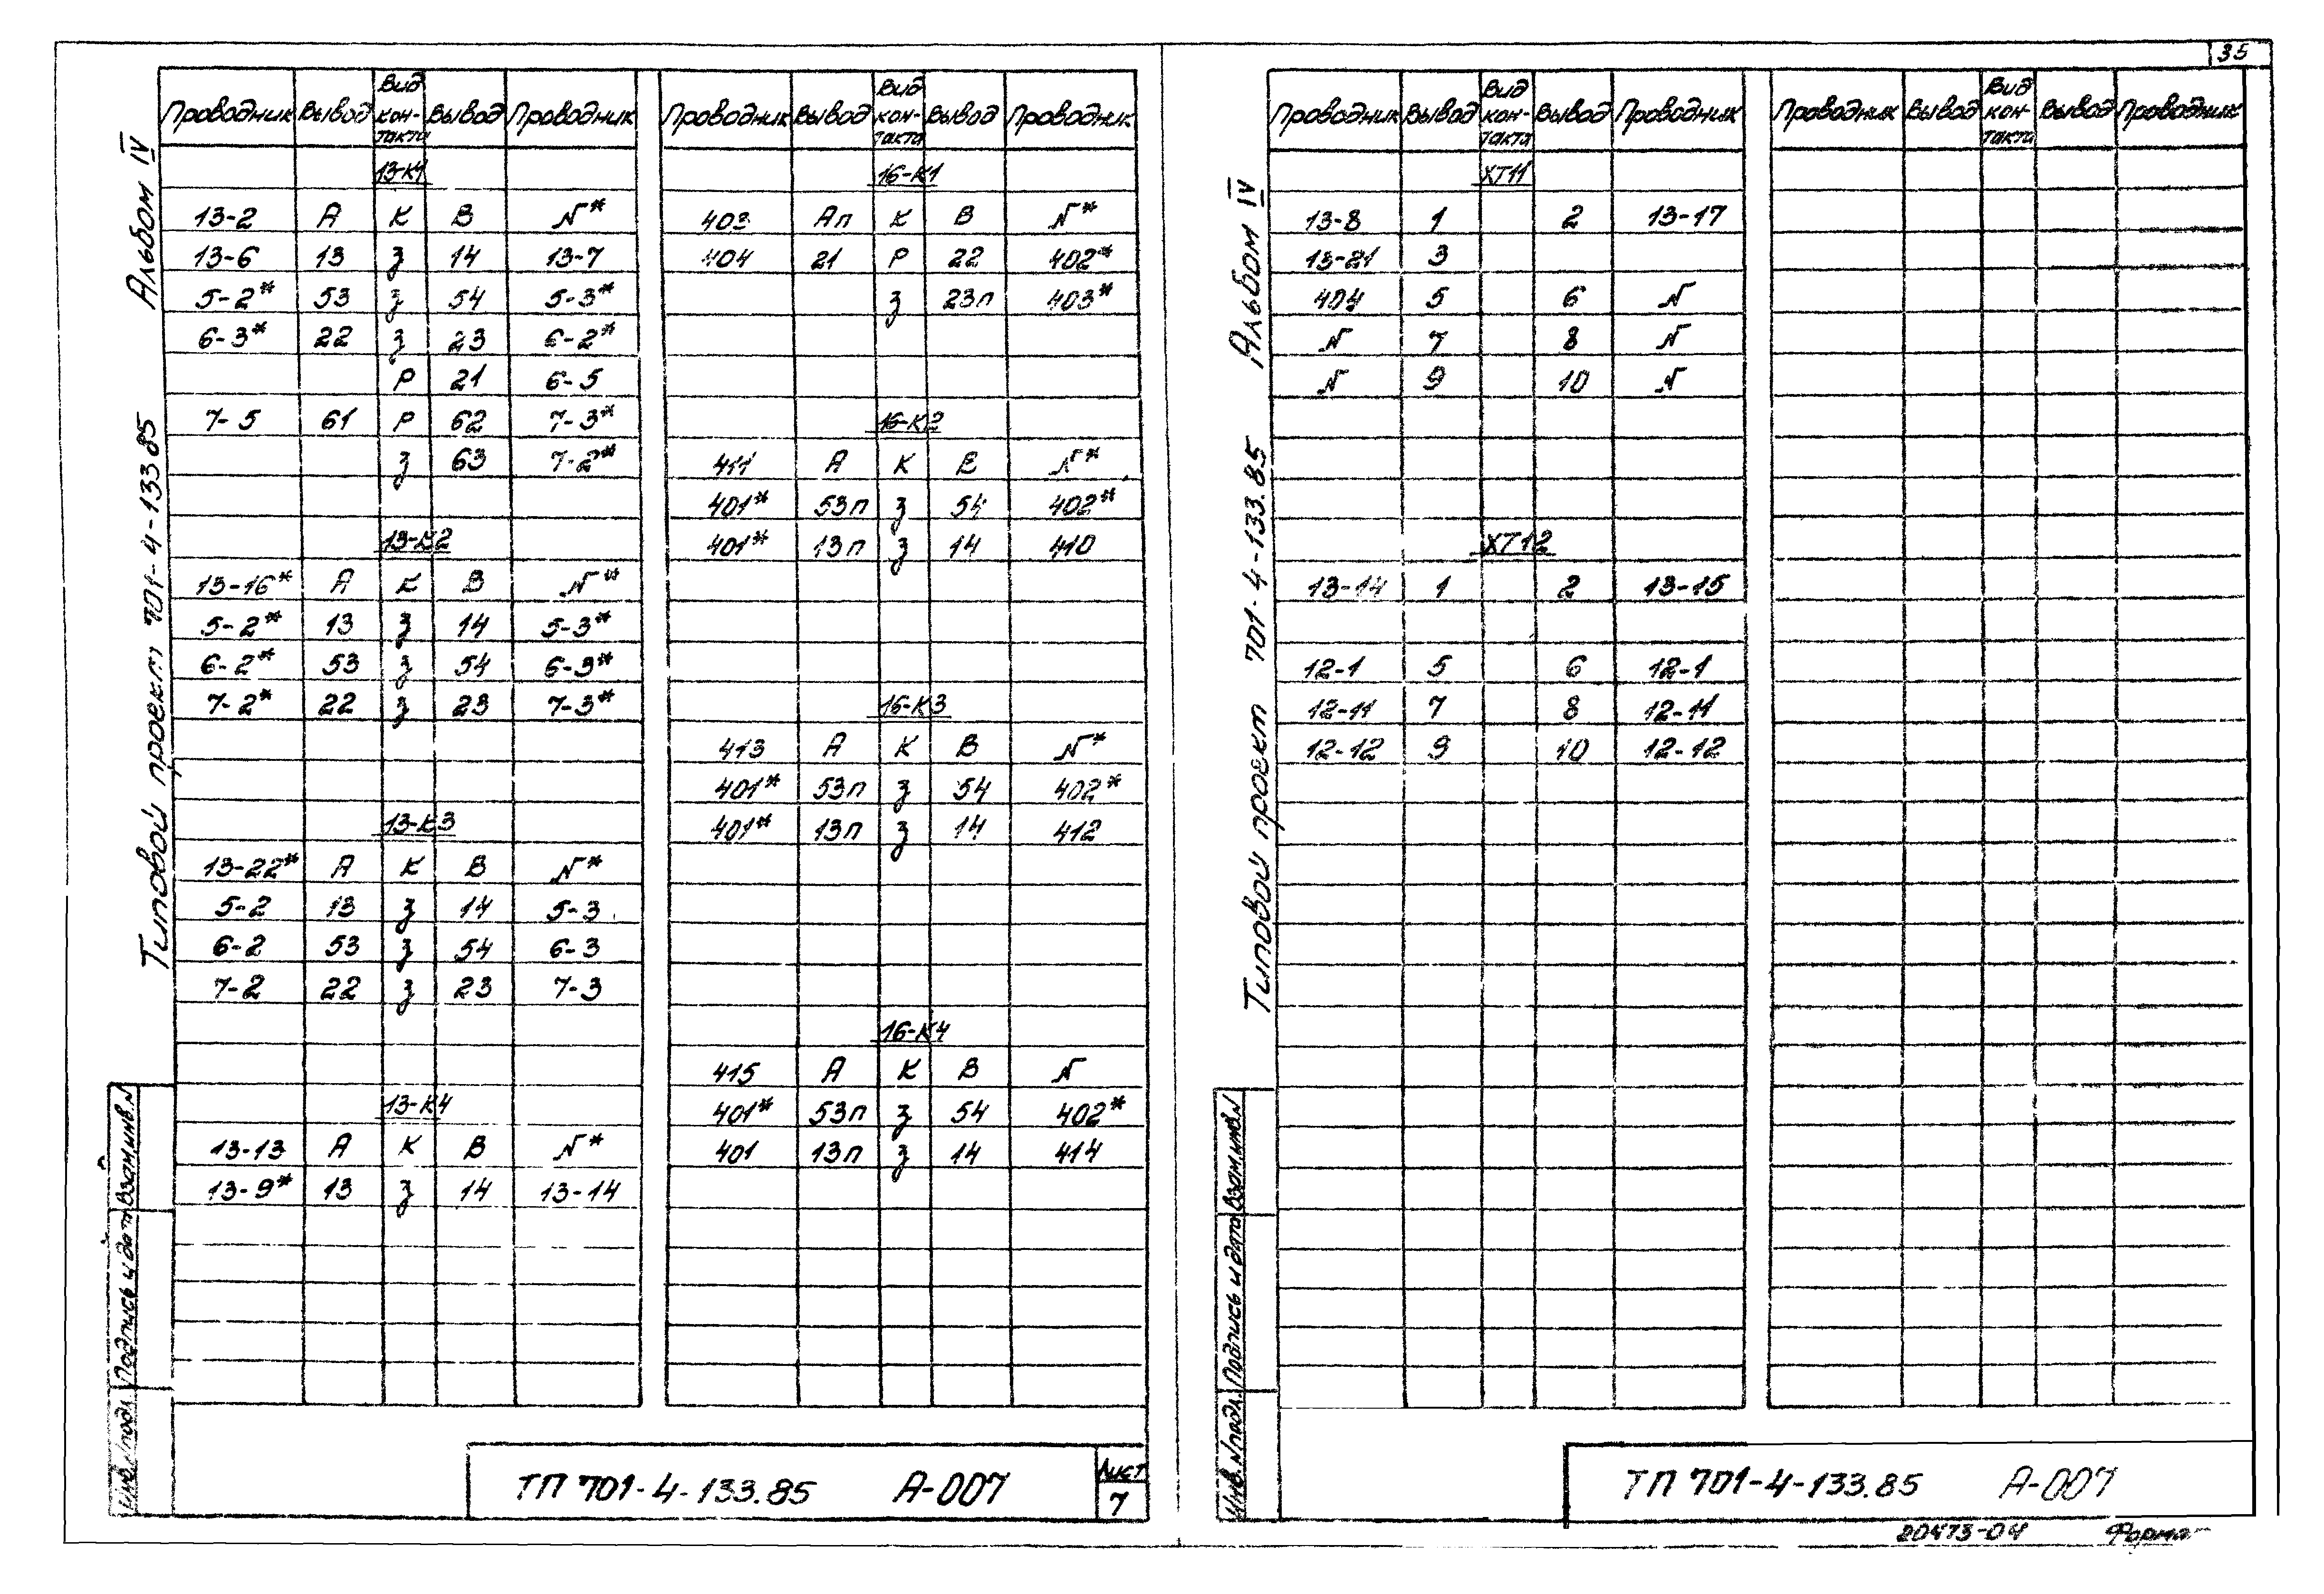 35
Альбом IV
Типовой проект 701-4-133.85
Проводник Вывод Вид контакта Вывод Проводник
13-К1
13-2 А К В N*
13-6 13 з 14 13-7
5-2* 53 з 54 5-3*
6-3* 22 з 23 6-2*
Р 21 6-5
7-5 61 Р 62 7-3*
з 63 7-2*
13-К2
13-16* А К В N*
5-2* 13 з 14 5-3*
6-2* 53 з 54 6-3*
7-2* 22 з 23 7-3*
13-К3
13-22* А К В N*
5-2 13 з 14 5-3
6-2 53 з 54 6-3
7-2 22 з 23 7-3
13-К4
13-13 А К В N*
13-9* 13 з 14 13-14
Проводник Вывод Вид контакта Вывод Проводник
16-К1
403 Ап К В N*
404 21 Р 22 402*
з 23п 403*
16-К2
411 А К В N*
401* 53п з 54 402*
401* 13п з 14 410
16-К3
413 А К В N*
401* 53п з 54 402*
401* 13п з 14 412
16-К4
415 А К В N
401* 53п з 54 402*
401 13п з 14 414
Инв.N подл. Подпись и дата Взам.инв.N
ТП 701-4-133.85 А-007
Лист
7
Альбом IV
Типовой проект 701-4-133.85
Проводник Вывод Вид контакта Вывод Проводник
ХТ11
13-8 1 2 13-17
13-21 3
404 5 6 N
N 7 8 N
N 9 10 N
ХТ12
13-14 1 2 13-15
12-1 5 6 12-1
12-11 7 8 12-11
12-12 9 10 12-12
Проводник Вывод Вид контакта Вывод Проводник
Инв.N подл. Подпись и дата Взам.инв.N
ТП 701-4-133.85 А-007
20473-04 Форма